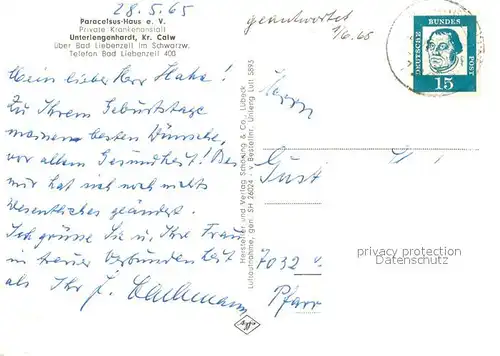 28.5.65
Paracelsus-Haus e. V.
Private Krankenanstalt
Unterlengenhardt, Kr. Calw
über Bad Liebenzell im Schwarzw.
Telefon Bad Liebenzell 400
Mein lieber Herr Hahn!
Zu Ihrem Geburtstage
meinen besten Wünsche,
vor allem Gesundheit! Bei
mir hat sich noch nichts
Wesentliches geändert.
Ich grüsse Sie u. Ihre Frau
in treuer Verbundenheit
als Ihr J.
Hersteller und Verlag Schöning & Co., Lübeck
Luftaufnahme, gen. SH 26024 · v. Bestellnr. Unleng Luft 5895
geantwortet
1/6.65
DEUTSCHE BUNDES POST
15
Herrn
Gust
7032
Pfarr
privacy protection
Datenschutz